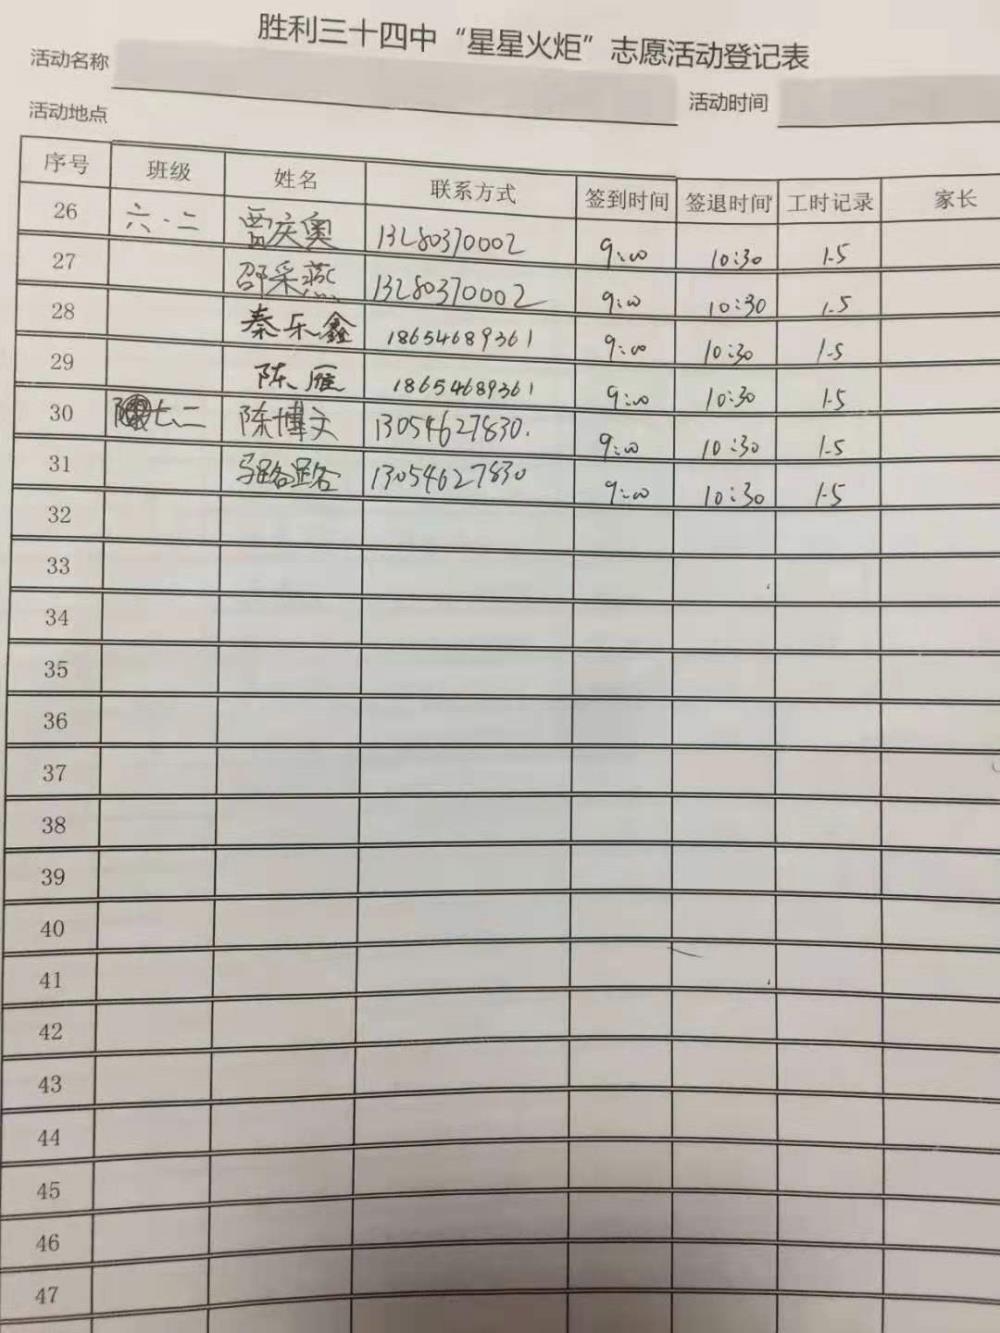 胜利三十四中“星星火炬”志愿活动登记表
活动名称
活动时间
活动地点
序号 班级 姓名 联系方式 签到时间 签退时间 工时记录 家长
26 六.二 贾庆奥 13280370002 9:00 10:30 1.5
27 邵采燕 13280370002 9:00 10:30 1.5
28 秦乐鑫 18654689361 9:00 10:30 1.5
29 陈雁 18654689361 9:00 10:30 1.5
30 七、二 陈博文 13054627830. 9:00 10:30 1.5
31 马路路 13054627830 9:00 10:30 1.5
32
33
34
35
36
37
38
39
40
41
42
43
44
45
46
47